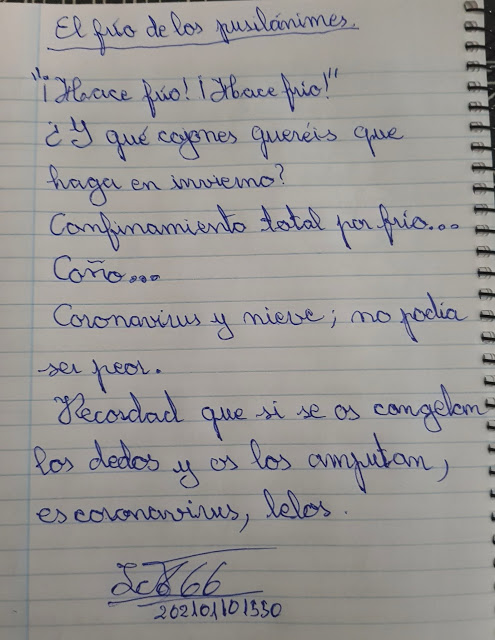 El frío de los pusilánimes.
"¡Hace frío! ¡Hace frío!"
¿Y qué cojones queréis que
haga en invierno?
Confinamiento total por frío...
Coño...
Coronavirus y nieve; no podía
ser peor.
Recordad que si se os congelan
los dedos y os los amputan,
es coronavirus, lelos.
202101101330